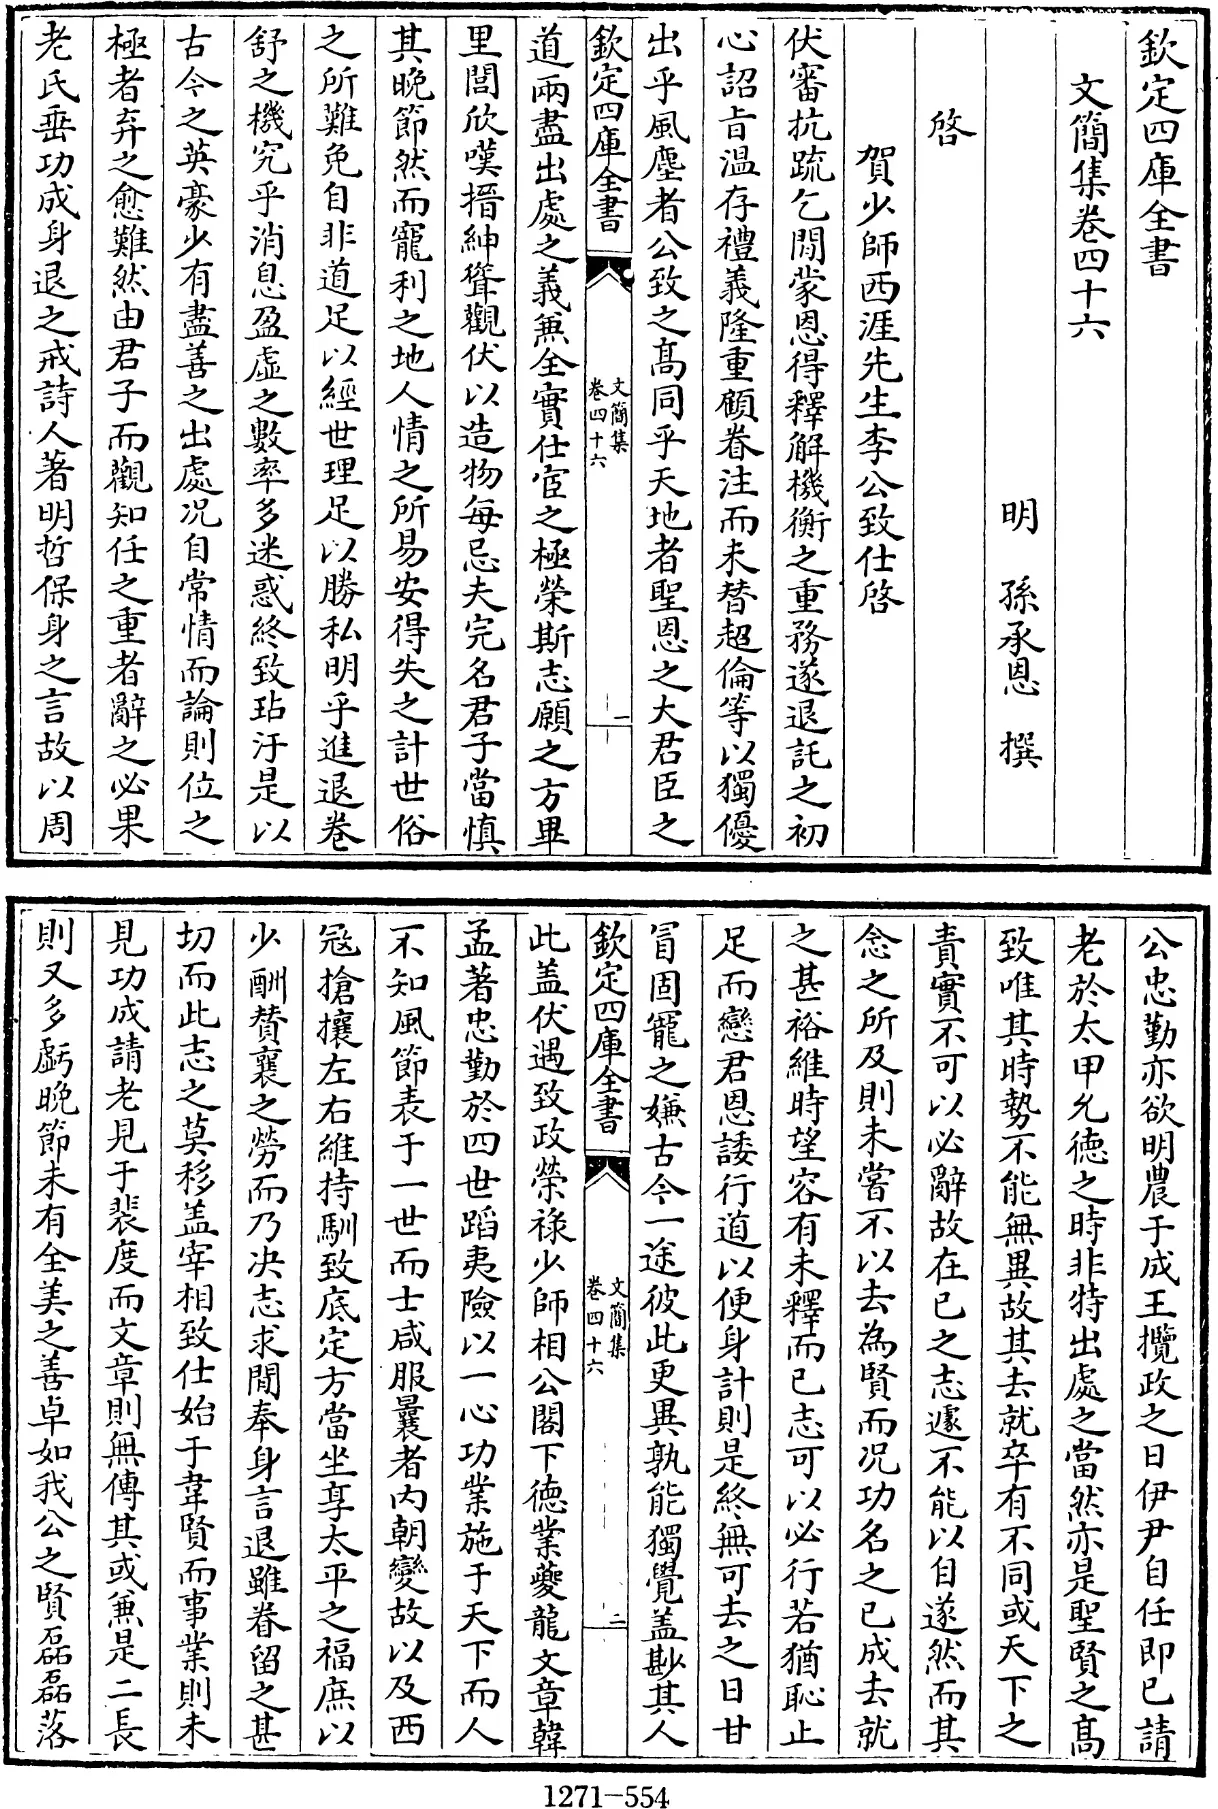 欽定四庫全書
文簡集巻四十六
明　孫承恩　撰
啓
賀少師西涯先生李公致仕啓
伏審抗疏乞閒蒙恩得釋解機衡之重務遂退託之初
心詔旨温存禮義隆重顧眷注而未替超倫等以獨優
出乎風塵者公致之髙同乎天地者聖恩之大君臣之
欽定四庫全書
文簡集
巻四十六
一
道兩盡出處之義兼全實仕宦之極榮斯志願之方畢
里閭欣嘆搢紳聳觀伏以造物每忌夫完名君子當慎
其晩節然而寵利之地人情之所易安得失之計世俗
之所難免自非道足以經世理足以勝私明乎進退卷
舒之機究乎消息盈虚之數率多迷惑終致玷汙是以
古今之英豪少有盡善之出處况自常情而論則位之
極者弃之愈難然由君子而觀知任之重者辭之必果
老氏垂功成身退之戒詩人著明哲保身之言故以周
公忠勤亦欲明農于成王攬政之日伊尹自任即已請
老於太甲允德之時非特出處之當然亦是聖賢之髙
致唯其時勢不能無異故其去就卒有不同或天下之
責實不可以必辭故在已之志遽不能以自遂然而其
念之所及則未嘗不以去為賢而况功名之已成去就
之甚裕維時望容有未釋而已志可以必行若猶恥止
足而戀君恩諉行道以便身計則是終無可去之日甘
冒固寵之嫌古今一途彼此更異孰能獨覺盖尠其人
欽定四庫全書
文簡集
巻四十六
二
此盖伏遇致政榮禄少師相公閣下德業夔龍文章韓
孟著忠勤於四世蹈夷險以一心功業施于天下而人
不知風節表于一世而士咸服曩者内朝變故以及西
冦搶攘左右維持馴致底定方當坐享太平之福庶以
少酬賛襄之勞而乃决志求閒奉身言退雖眷留之甚
切而此志之莫移盖宰相致仕始于韋賢而事業則未
見功成請老見于裴度而文章則無傳其或兼是二長
則又多虧晩節未有全美之善卓如我公之賢磊磊落
1271-554